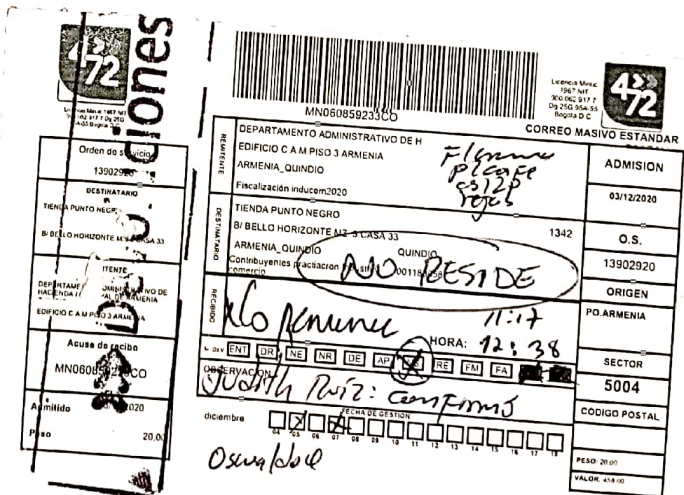 472
Orden de servicio
13902920
DESTINATARIO
TIENDA PUNTO NEGRO
B/ BELLO HORIZONTE MZ 5 CASA 33
EDIFICIO C A M PISO 3 ARMENIA
Acuse de recibo
Admitido
2020
Peso 20,00
Devoluciones
MN060859233CO
Licencia Mintic
1967 NIT
900.062.917.7
Dg 25G 95A-55
Bogota D.C
472
CORREO MASIVO ESTANDAR
REMITENTE
DEPARTAMENTO ADMINISTRATIVO DE H
EDIFICIO C A M PISO 3 ARMENIA
ARMENIA_QUINDIO
Fiscalización inducom2020
rejas
DESTINATARIO
TIENDA PUNTO NEGRO
B/ BELLO HORIZONTE MZ 5 CASA 33 1342
ARMENIA_QUINDIO QUINDIO
Contribuyentes
comercio
NO RESIDE
RECIBIDO
11:17
HORA: 12:38
DEV ENT DR NE NR DE AP RE FM FA
OBSERVACION
Judith Ruiz: confirmó
diciembre FECHA DE GESTION
04 05 06 07 08 09 10 11 12 13 14 15 16 17 18
ADMISION
03/12/2020
O.S.
13902920
ORIGEN
PO.ARMENIA
SECTOR
5004
CODIGO POSTAL
PESO: 20.00
VALOR: 458.00